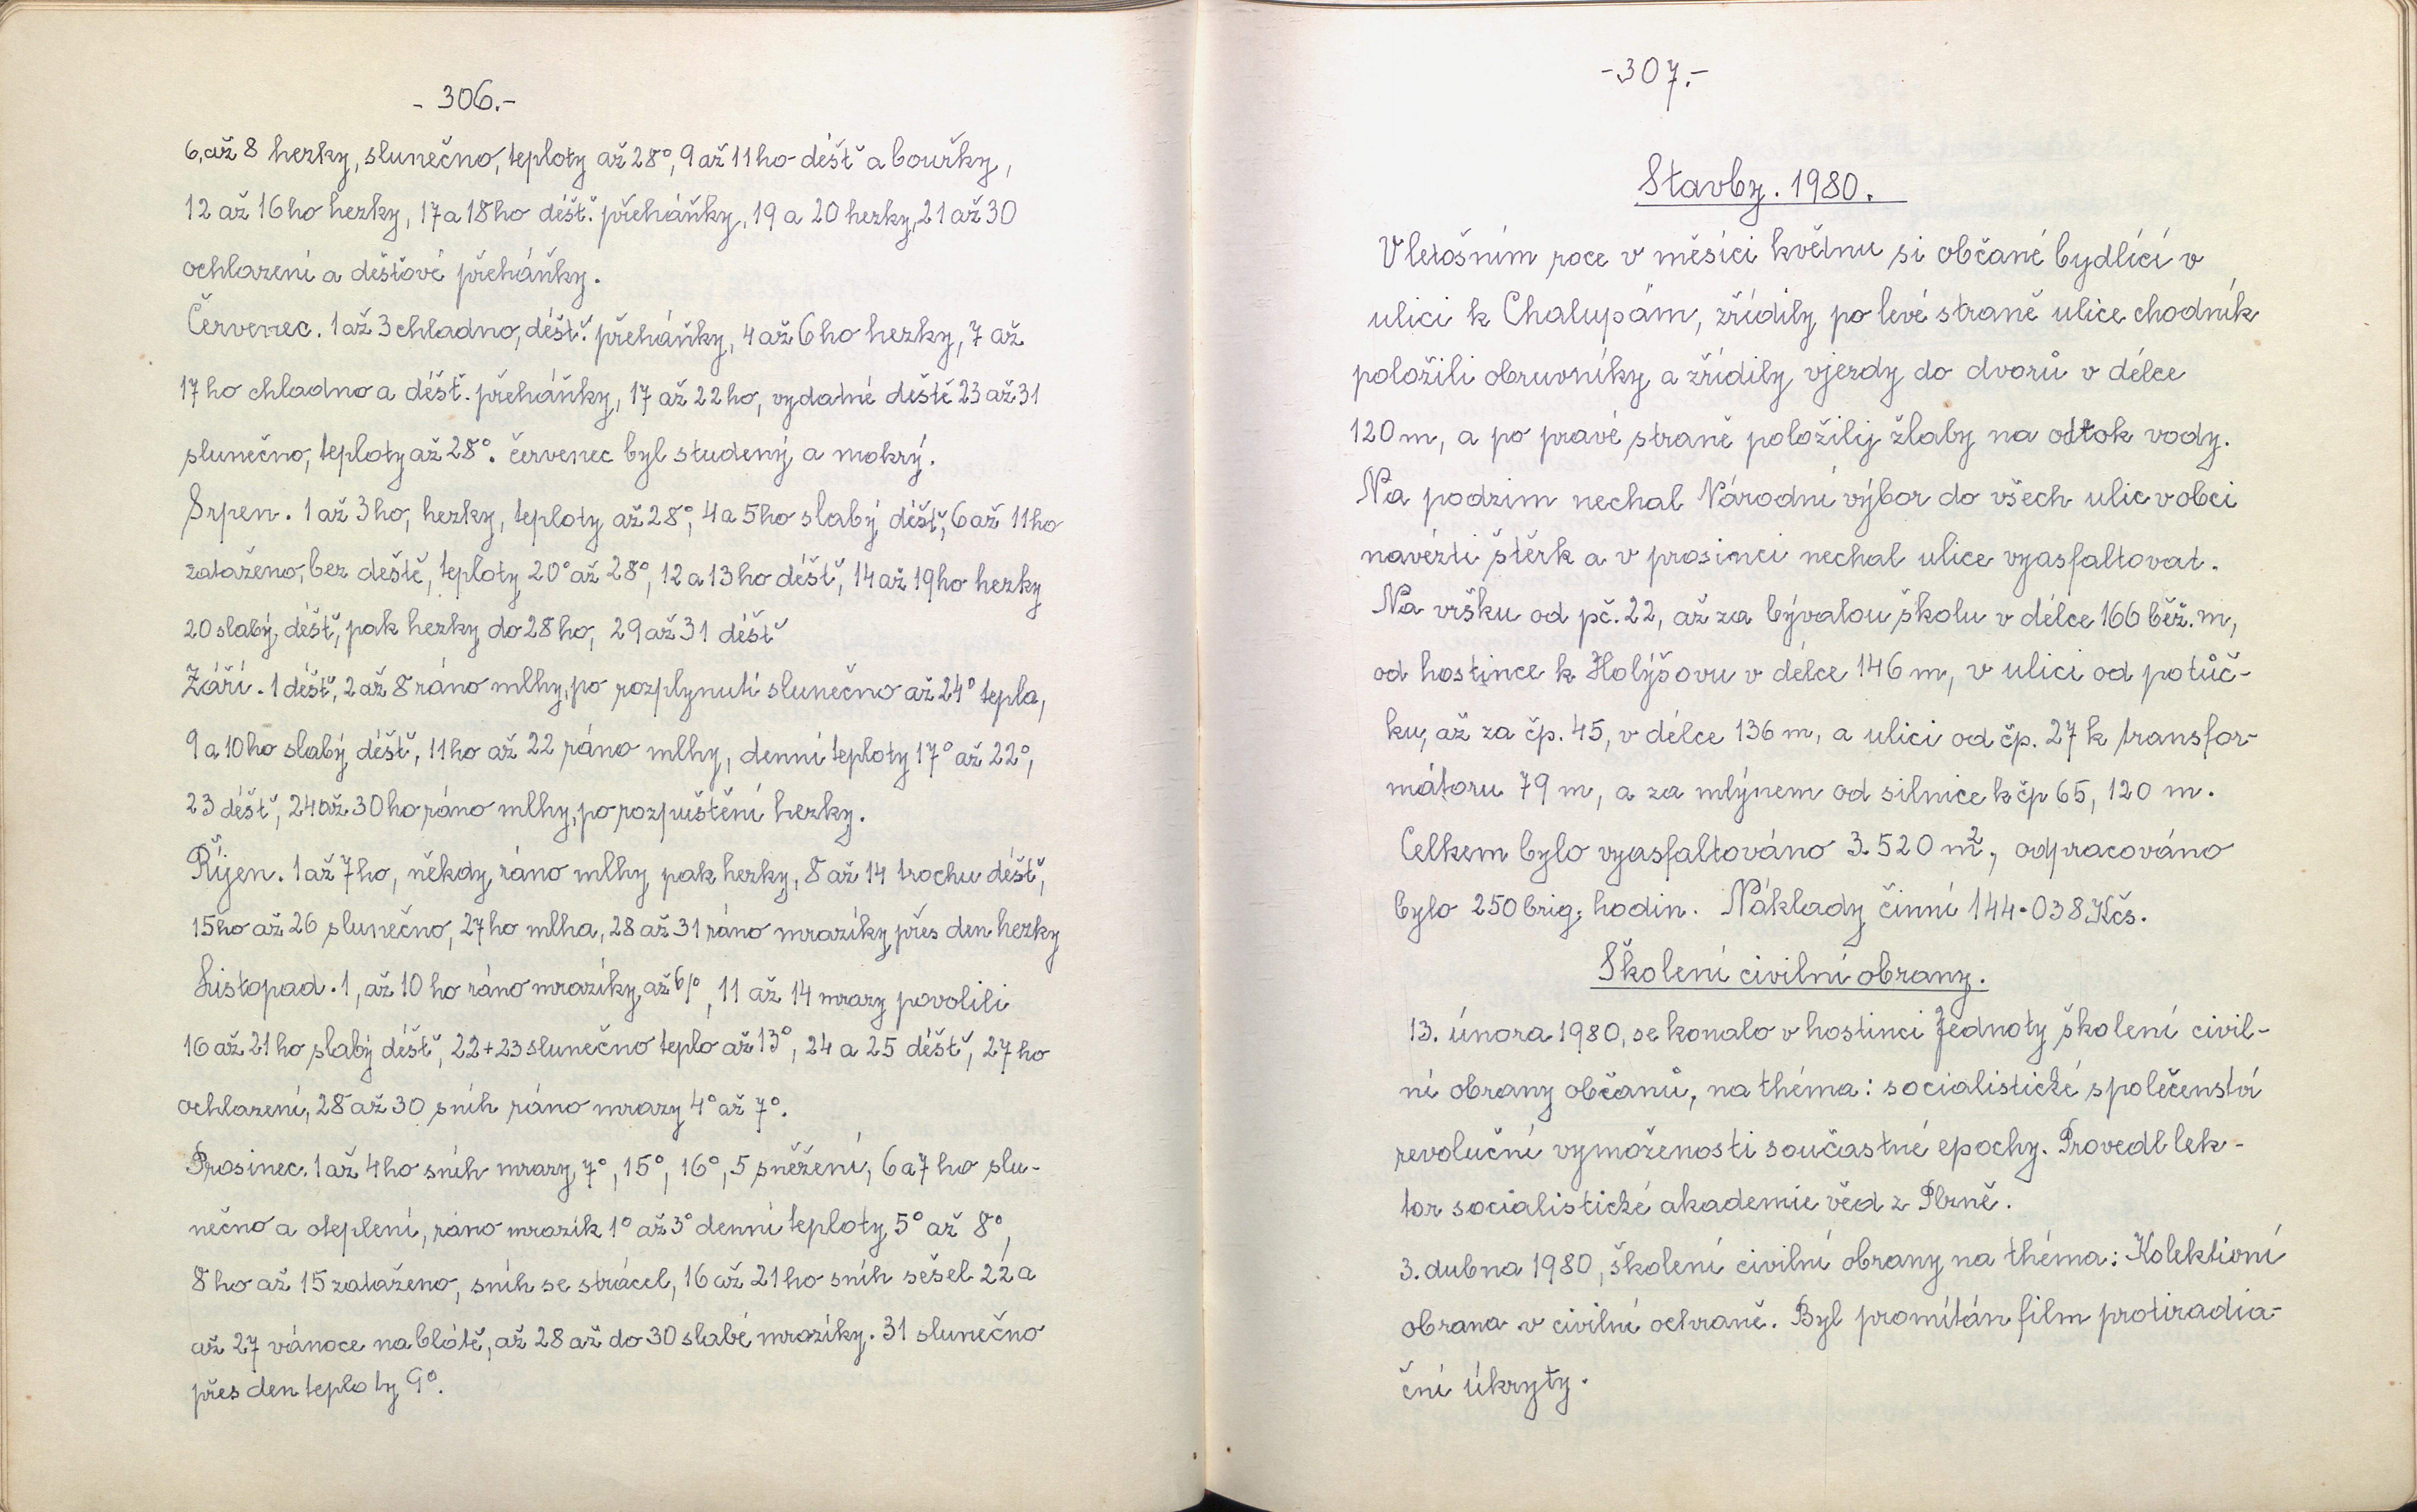 - 306.-
6,až 8 hezky, slunečno, teploty až 28°, 9 až 11ho déšť a bouřky,
12 až 16ho hezky, 17 a 18ho déšť. přeháňky, 19 a 20 hezky, 21 až 30
ochlazení a déšťové přeháňky.
Červenec. 1 až 3 chladno, déšť. přeháňky, 4 až 6ho hezky, 7 až
17ho chladno a déšť. přeháňky, 17 až 22ho, vydatné deště 23 až 31
slunečno, teploty až 28°. červenec byl studený a mokrý.
Srpen. 1 až 3ho, hezky, teploty až 28°, 4 a 5ho slabý déšť, 6 až 11ho
zataženo, bez deště, teploty 20° až 28°, 12 a 13ho déšť, 14 až 19ho hezky
20 slabý déšť, pak hezky do 28ho, 29 až 31 déšť
Září. 1 déšť, 2 až 8 ráno mlhy, po rozplynutí slunečno až 24° tepla,
9 a 10ho slabý déšť, 11ho až 22 ráno mlhy, denní teploty 17° až 22°,
23 déšť, 24 až 30ho ráno mlhy, po rozpuštění hezky.
Říjen. 1 až 7ho, někdy ráno mlhy pak hezky, 8 až 14 trochu déšť,
15ho až 26 slunečno, 27ho mlha, 28 až 31 ráno mrazíky přes den hezky
Listopad. 1, až 10ho ráno mrazíky, až 6°, 11 až 14 mrazy povolili
16 až 21ho slabý déšť, 22+23 slunečno teplo až 13°, 24 a 25 déšť, 27ho
ochlazení, 28 až 30 sníh ráno mrazy 4° až 7°.
Prosinec. 1 až 4ho sníh mrazy, 7°, 15°, 16°, 5 sněžení, 6 a 7ho slu-
nečno a oteplení, ráno mrazík 1° až 3° denní teploty 5° až 8°,
8ho až 15 zataženo, sníh se strácel, 16 až 21ho sníh sešel 22 a
až 27 vánoce na blátě, až 28 až do 30 slabé mrazíky. 31 slunečno
přes den teploty 9°.
-307.-
Stavby. 1980.
V letošním roce v měsíci květnu si občané bydlící v
ulici k Chalupám, zřídily po levé straně ulice chodník
položili obruvníky a zřídily vjezdy do dvorů v délce
120 m, a po pravé straně položily žlaby na odtok vody.
Na podzim nechal Národní výbor do všech ulic v obci
navézti štěrk a v prosinci nechal ulice vyasfaltovat.
Na vršku od pč. 22, až za bývalou školu v délce 166 běž. m,
od hostince k Holýšovu v délce 146 m, v ulici od potůč-
ku, až za čp. 45, v délce 136 m, a ulici od čp. 27 k transfor-
mátoru 79 m, a za mlýnem od silnice k čp 65, 120 m.
Celkem bylo vyasfaltováno 3.520 m², odpracováno
bylo 250 brig. hodin. Náklady činní 144.038 Kčs.
Školení civilní obrany.
13. února 1980, se konalo v hostinci Jednoty školení civil-
ní obrany občanů, na théma: socialistické společenství
revoluční vymoženosti součastné epochy. Provedl lek-
tor socialistické akademie věd z Plzně.
3. dubna 1980, školení civilní obrany na théma: Kolektivní
obrana v civilní ochraně. Byl promítán film protiradia-
ční úkryty.